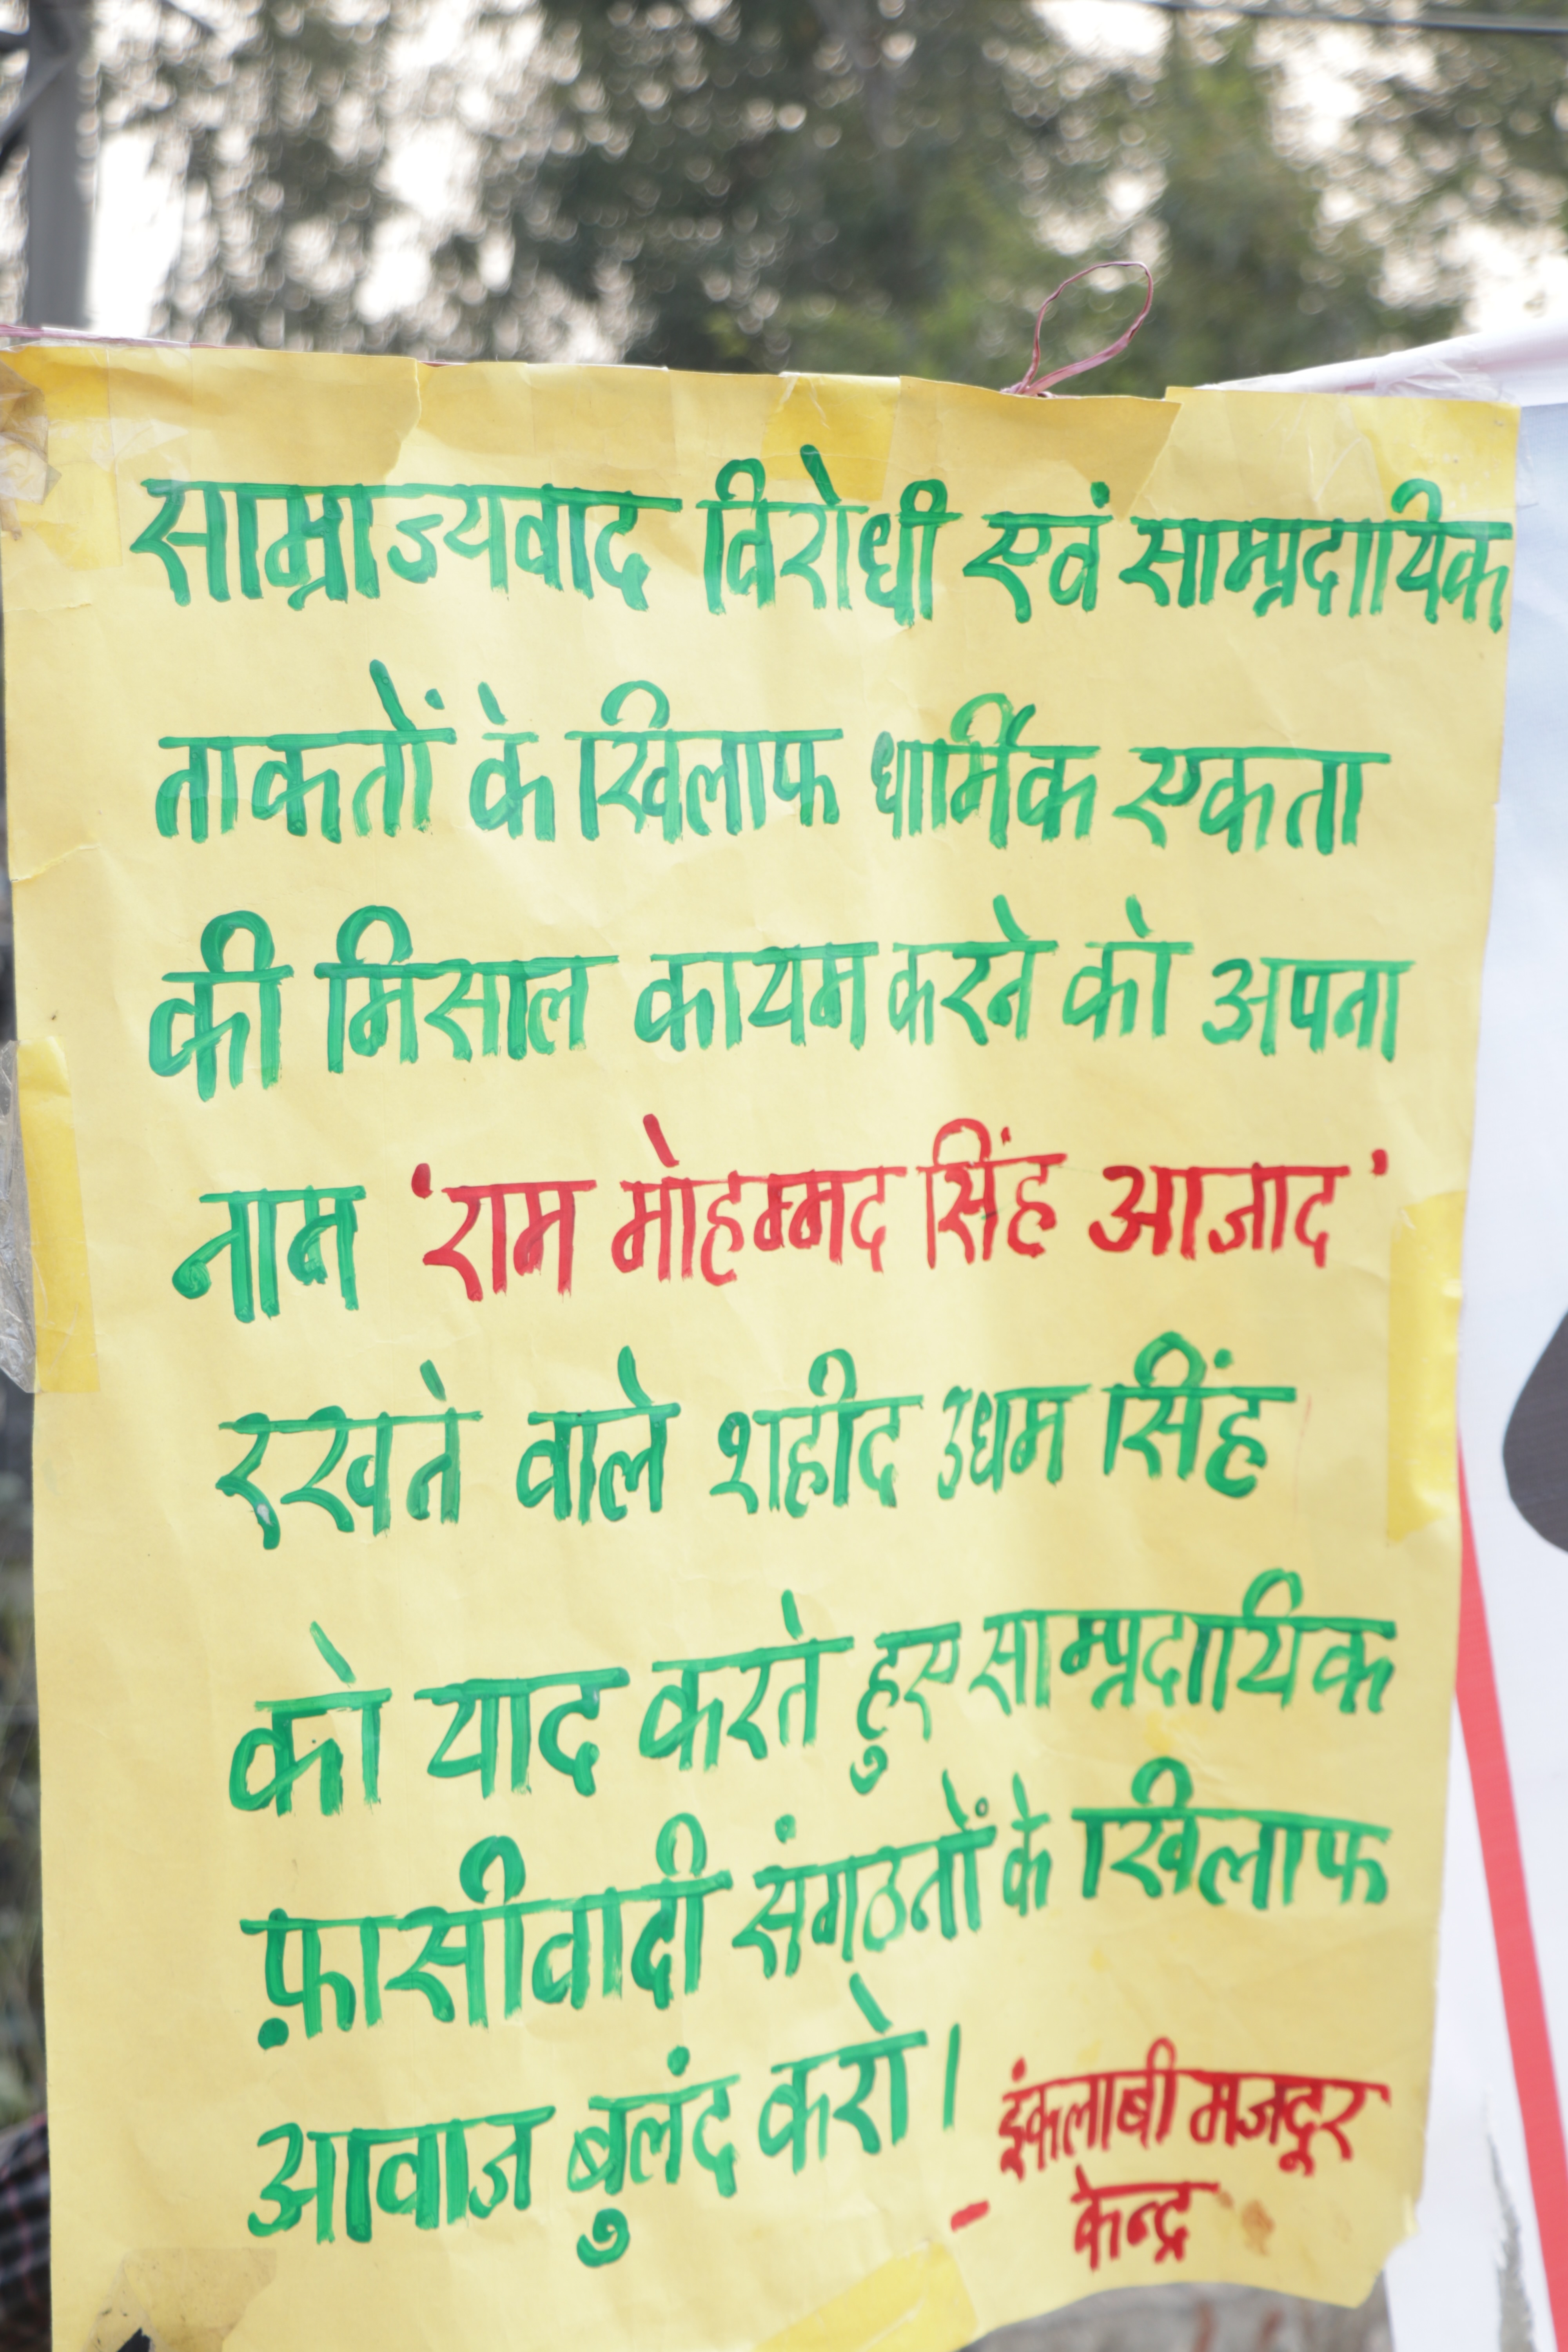 साम्राज्यवाद विरोधी एवं साम्प्रदायिक
ताकतों के खिलाफ धार्मिक एकता
की मिसाल कायम करने को अपना
नाम 'राम मोहम्मद सिंह आजाद'
रखने वाले शहीद उधम सिंह
को याद करते हुए साम्प्रदायिक
फ़ासीवादी संगठनों के खिलाफ
आवाज बुलंद करो।
- इंकलाबी मजदूर
केन्द्र